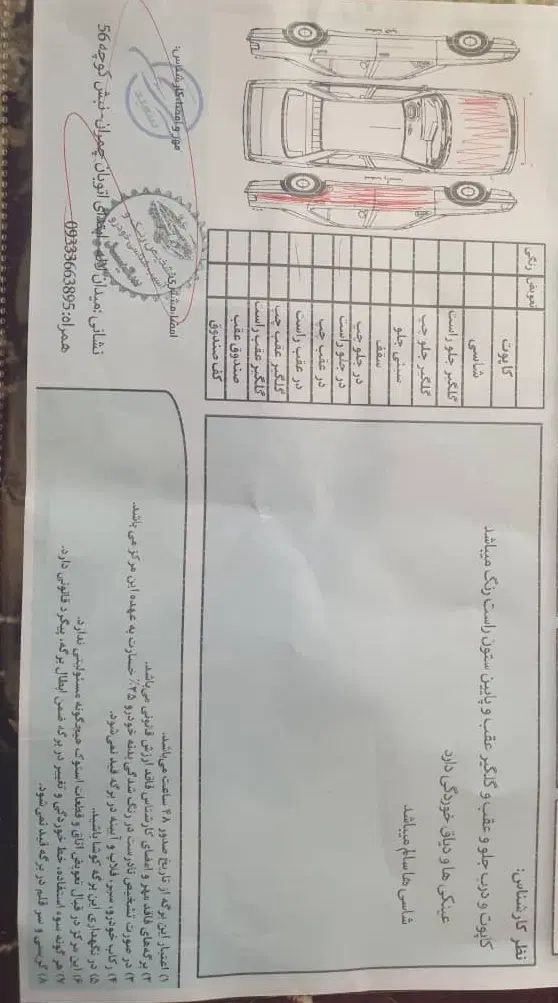 رنگی
تعویض
کاپوت
شاسی
گلگیر جلو راست
گلگیر جلو چپ
سینی جلو
سقف
در جلو چپ
در جلو راست
در عقب چپ
در عقب راست
گلگیر عقب چپ
گلگیر عقب راست
صندوق عقب
کف صندوق
نظر کارشناس:
کاپوت و درب جلو و عقب و گلگیر عقب و پایین ستون راست رنگ میباشد
عینکی ها و دیاق خوردگی دارد
شاسی ها سالم میباشد
مهر و امضا کارشناس:
امضا مشتری:
۱) اعتبار این برگه از تاریخ صدور ۴۸ ساعت می‌باشد.
۲) برگه‌های فاقد مهر و امضای کارشناس فاقد ارزش قانونی می‌باشد.
۳) در صورت تشخیص نادرست در رنگ شدگی بدنه خودرو ۲۵٪ خسارت به عهده این مرکز می باشد.
۴) رکاب خودرو، سپر، قلاب و آیینه در برگه قید نمی‌شود.
۵) در نگهداری این برگه کوشا باشید.
۶) این مرکز در قبال تعویض اتاق و قطعات استوک هیچگونه مسئولیتی ندارد.
۷) هر گونه سوء استفاده، خط خوردگی و تغییر در برگه، ضمن ابطال برگه، پیگرد قانونی دارد.
۸) گریسی و سر قلم در برگه قید نمی‌شود.
نشانی :میدان ابتدای اتوبان چمران- نبش کوچه 56
همراه:09333663895